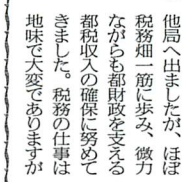 他局へ出ましたが、ほぼ
税務畑一筋に歩み、微力
ながらも都財政を支える
都税収入の確保に努めて
きました。税務の仕事は
地味で大変でありますが